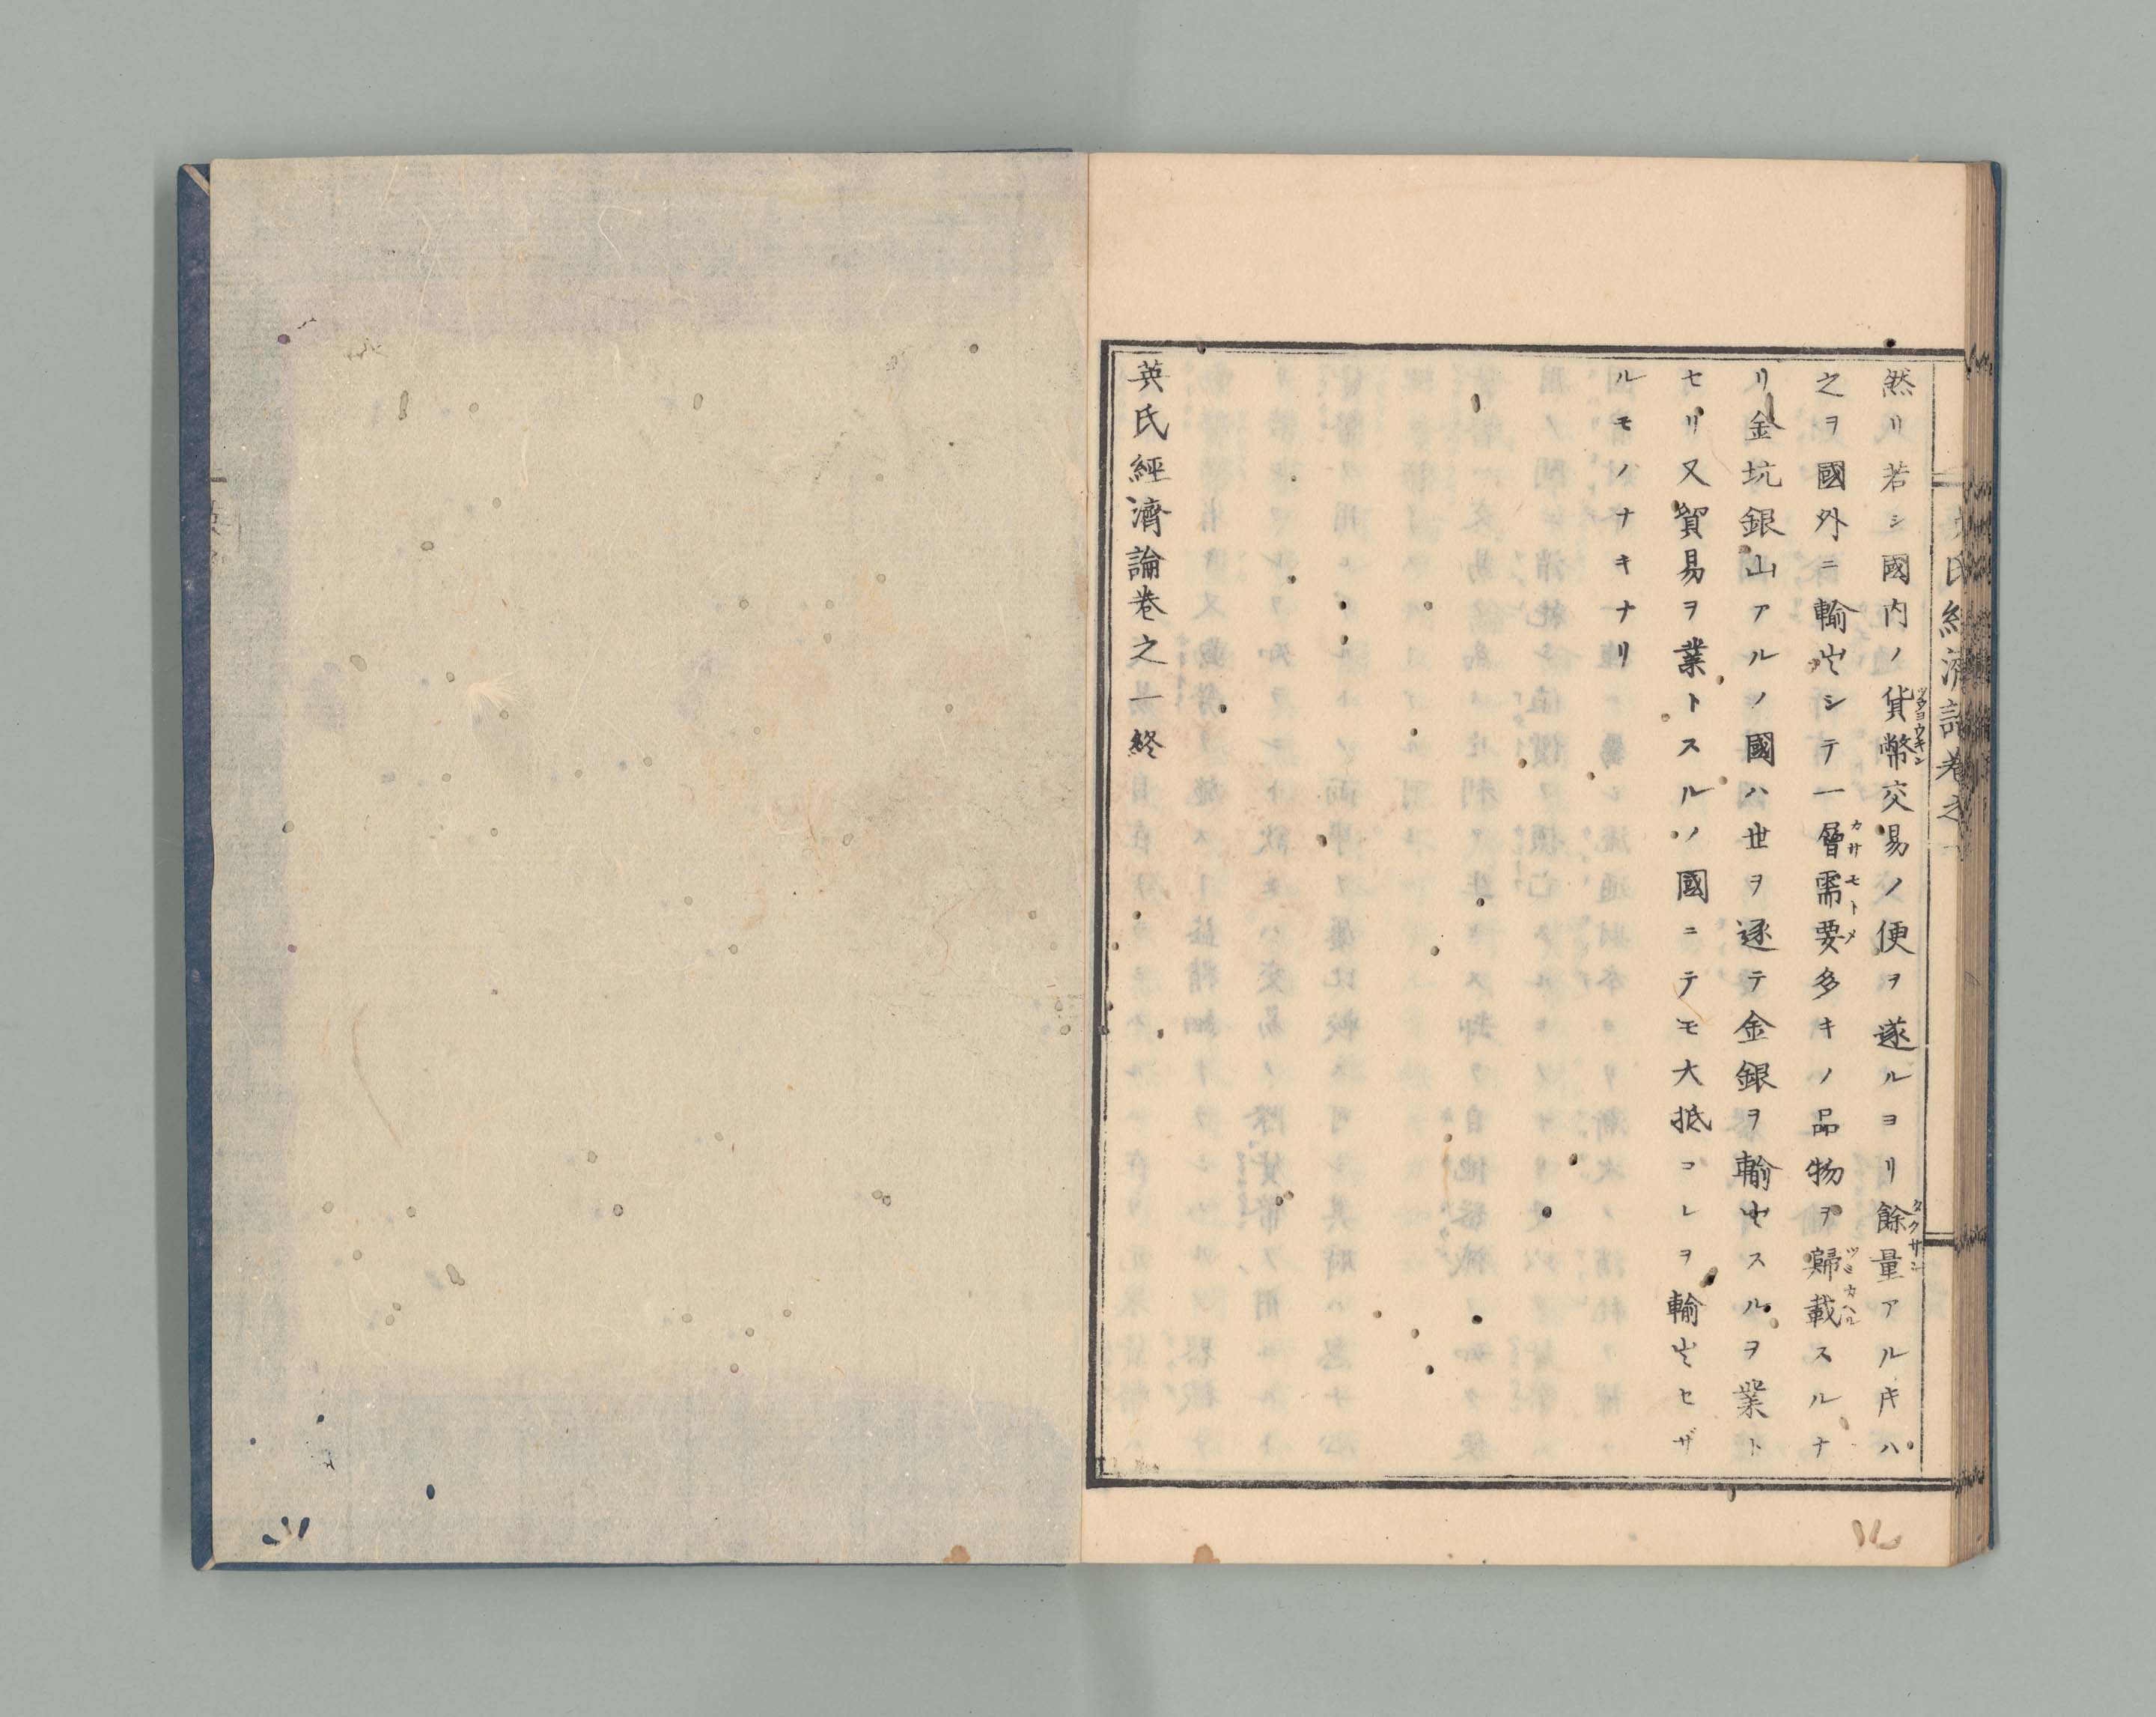 然リ若シ國内ノ貨幣交易ノ便ヲ遂ルヨリ餘量アルキハ
ツウヨウキン
タクサン
之ヲ國外ニ輸出シテ一層需要多キノ品物ヲ歸載スルナ
カサ
モトメ
ツミカヘル
リ金坑銀山アルノ國ハ世ヲ逐テ金銀ヲ輸出スルヲ業ト
セリ又貿易ヲ業トスルノ國ニテモ大抵コレヲ輸出セザ
ルモノナキナリ
英氏經濟論卷之一終
氏經濟論卷之一